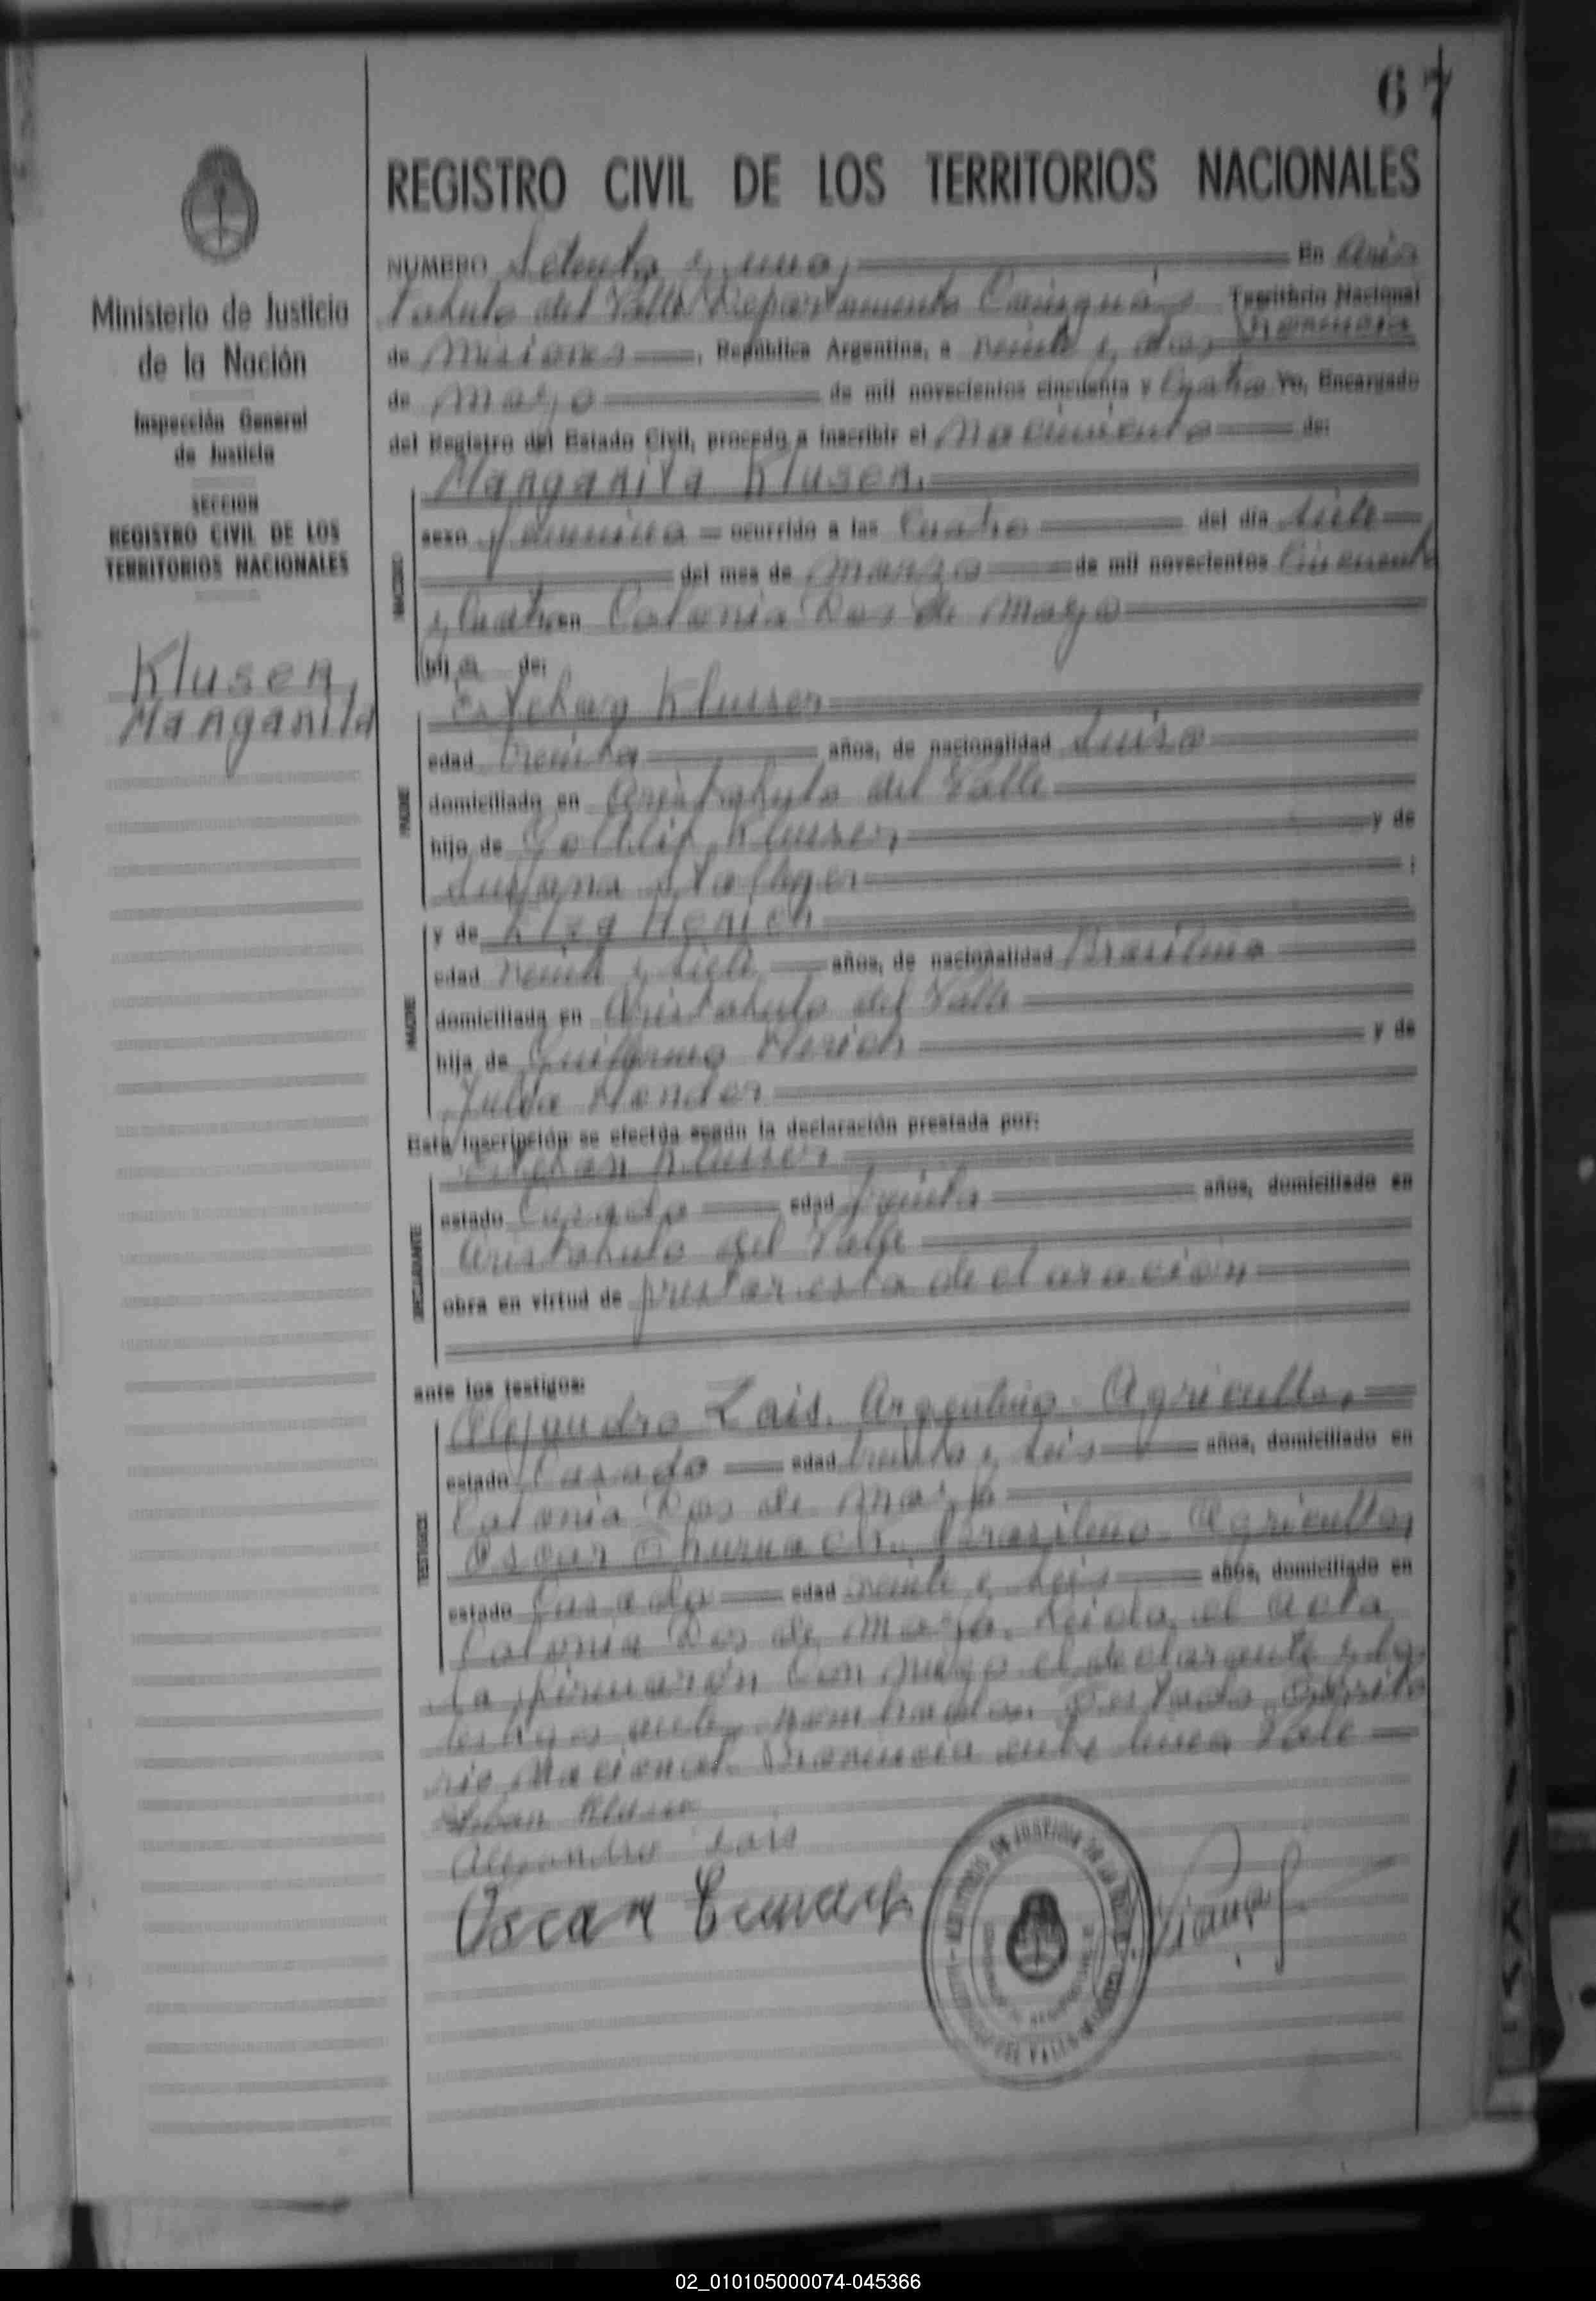 67
REGISTRO CIVIL DE LOS TERRITORIOS NACIONALES
Ministerio de Justicia
de la Nación
Inspección General
de Justicia
SECCION
REGISTRO CIVIL DE LOS
TERRITORIOS NACIONALES
Klusen,
Manganila
NUMERO Setenta y uno, En Aris
tobulo del Valle Departamento Cainguás Territorio Nacional
Provincia
de Misiones, República Argentina, a veinte y dos
de Mayo de mil novecientos cincuenta y Cuatro Yo, Encargado
del Registro del Estado Civil, procedo a inscribir el Nacimiento de:
Manganila Klusen.
sexo femenino ocurrido a las Cuatro del día siete
del mes de Marzo de mil novecientos Cincuenta
y Cuatro en Colonia Dos de Mayo
hija de:
PADRE
Esteban Klusen
edad treinta años, de nacionalidad Suiso
domiciliado en Aristobulo del Valle
hijo de Klusen, y de
;
MADRE
y de
edad veinte y siete años, de nacionalidad Brasileña
domiciliada en Aristobulo del Valle
hija de Guillermo y de
Julia
Esta inscripción se efectúa según la declaración prestada por:
DECLARANTE
Esteban Klusen,
estado Casado edad treinta años, domiciliado en
Aristobulo del Valle
obra en virtud de prestar esta declaración
ante los testigos:
TESTIGOS
Alejandro Lais. Argentino Agricultor,
estado Casado edad treinta y seis años, domiciliado en
Colonia Dos de Mayo
Oscar Brasileño Agricultor,
estado Casado edad veinte y seis años, domiciliado en
Colonia Dos de Mayo. Leida el Acta
la firmarón Con migo el declarante y los
testigos ante nombrados. Testado Territo
rio Nacional. Provincia entre linea Vale
Alejandro Lais
Oscar
02_010105000074-045366